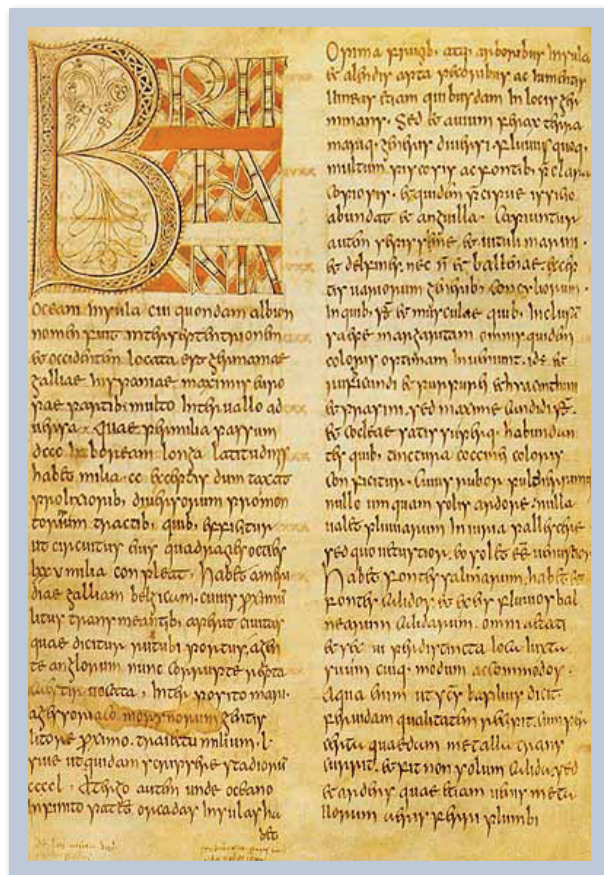 BRIT
TA
NIA
oceani insula cui quondam albion
nomen fuit inter septentrionem
et occidentem locata est germaniae
galliae hispaniae maximis euro
pae partib; multo interuallo ad
uersa. quae per milia passuum
dccc in boream longa latitudinis
habet milia .cc. exceptis dum taxat
prolixiorib; diuersorum promon
toriorum tractib; quib; efficitur
ut circuitus eius quadragies octies
lxxu milia conpleat. habet a meri
die galliam belgicam. cuius proximū
litus transmeantib; aperit ciuitas
quae dicitur rutubi portus. a gen
te anglorum nunc corrupte reptacaestir uocata, interposito mari.
a gessoriaco morynorum gentis
litore proximo. traiectu milium .l.
siue ut quidam scripsere stadiorū
ccccl. a tergo autem unde oceano
infinito patet orcadas insulas ha
bet
Opima frugib; atq; arboribus insula
et alendis apta pecoribus ac iumentis
uineas etiam quibusdam in locis ger
minans. sed et auium ferax terra
mariq; generis diuersi. fluuiis quoq;
multum piscosis ac fontib; p̄clara
copiosis. et quidem p̄cipue issicio
abundat et anguilla. capiuntur
autem saepissime et uituli marini.
et delfines. nec n̄ et ballenae. excep
tis uariorum generib; concyliorum.
in quib; s̄ et musculae quib; inclusā
saepe margaritam omnis quidem
coloris optimam inueniunt. id ē et
rubicundi et purpurei et hyacinthini
et prasini. sed maxime candidi. s̄
et cocleae satis superq; habundan
tes quib; tinctura coccinei coloris
conficitur. cuius rubor pulcherrimus
nullo umquam solis ardore. nulla
ualet pluuiarum iniuria pallescere
sed quo uetustior. eo solet ēē uenustior
habet fontes salinarum. habet et
fontes calidos. et ex eis fluuios bal
nearum calidarum. omni aetati
et sexu per distincta loca iuxta
suum cuiq; modum accommodos.
aqua enim ut scs basilius dicit
feruidam qualitatem recipit. cum per
certa quaedam metalla trans
currit. et fit non solum calida. sed
et ardens. quae etiam uenis metal
lorum aeris ferri plumbi